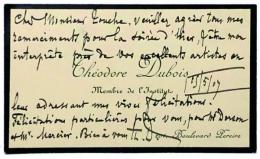 Cher Monsieur Touche, veuillez agréer tous mes
remerciements pour la soirée d'hier, être mon
interprète près de vos excellents artistes en
Théodore Dubois
Membre de l'Institut
15/5/07
leur adressant mes vives félicitations!
Félicitations particulières pour vous, pour Mr
et Mr. Mercier. Bien à vous Th. D.
Boulevard Pereire